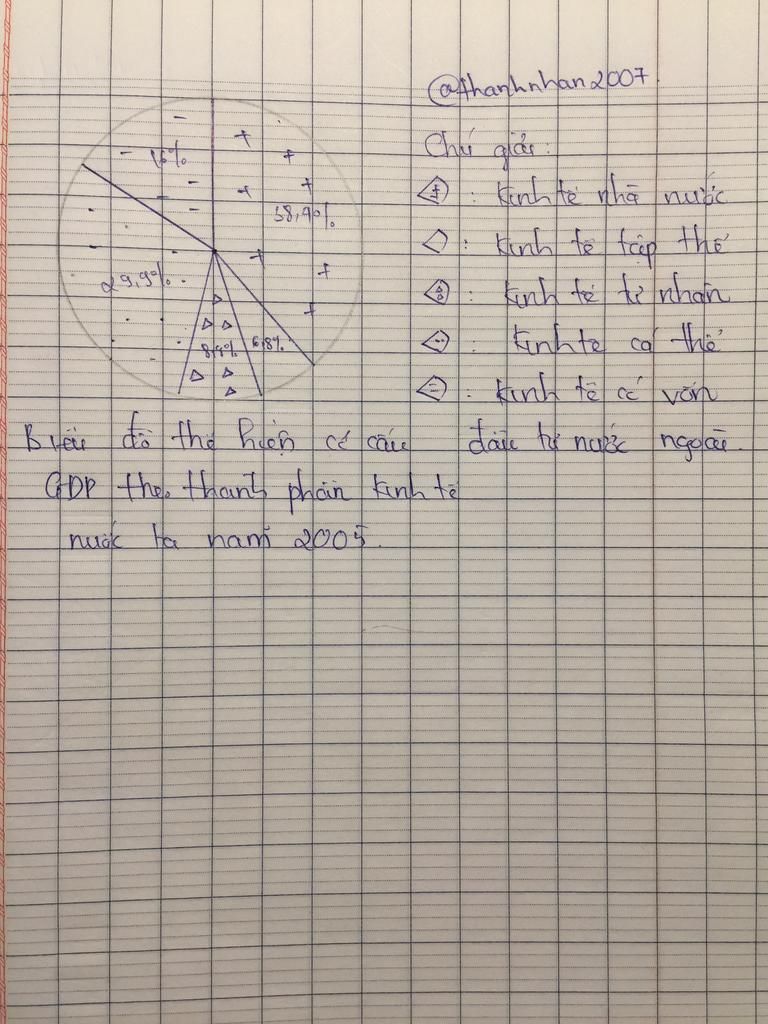 @thanhnhan2007
Chú giải:
: Kinh tế nhà nước
: Kinh tế tập thể
: Kinh tế tư nhân
: Kinh tế cá thể
: Kinh tế có vốn
đầu tư nước ngoài.
16%
38,4%
29,9%
8,9%
6,8%
Biểu đồ thể hiện cơ cấu
GDP theo thành phần kinh tế
nước ta năm 2005.